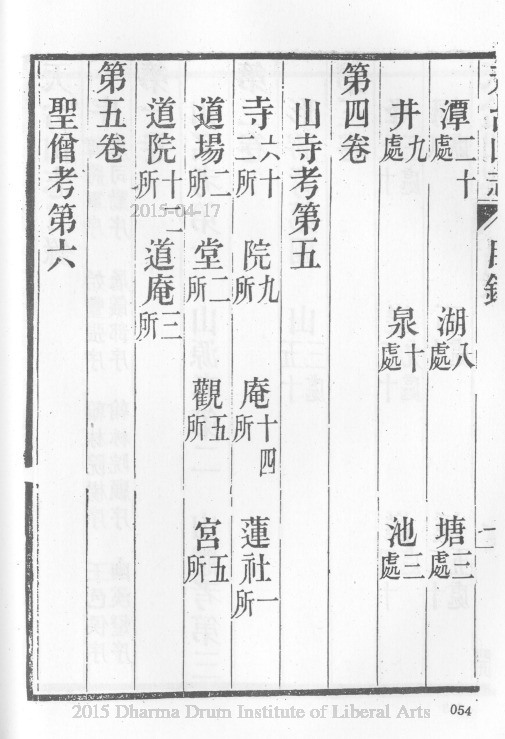 山志 目錄
潭二十處 湖八處 塘三處
井九處 泉十處 池三處
第四卷
山寺考第五
寺六十二所 院九所 庵十四所 蓮社一所
道場二所 堂二所 觀五所 宮五所
道院十二所 道庵三所
第五卷
聖僧考第六
2015-04-17
054
2015 Dharma Drum Institute of Liberal Arts